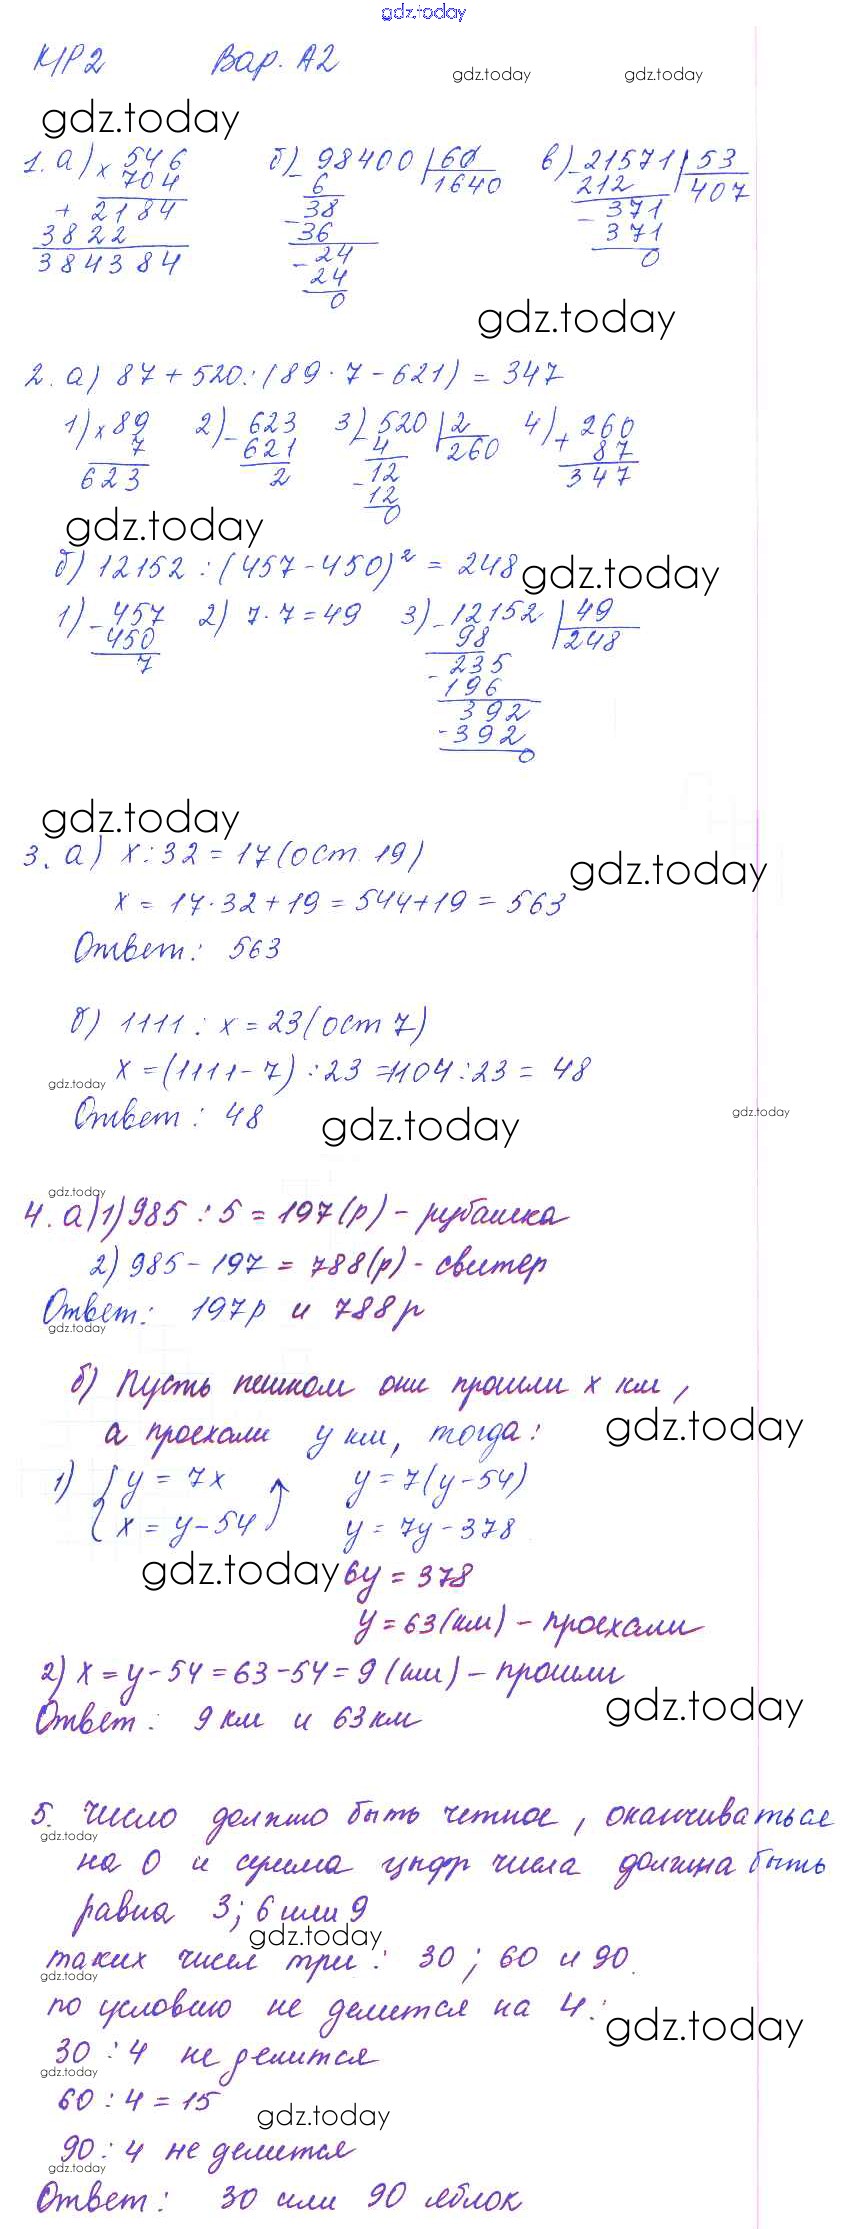 gdz.today
КР2 Вар. А2
gdz.today gdz.today
gdz.today
1. а) × 546 б) - 98400 | 60 в) - 21571 | 53
704 6 1640 212 407
+ 2184 - 38 - 371
3822 36 371
384384 - 24 0
24
0
gdz.today
2. а) 87 + 520 : (89 · 7 - 621) = 347
1) × 89 2) - 623 3) - 520 | 2 4) + 260
7 621 4 260 87
623 2 - 12 347
12
0
gdz.today
б) 12152 : (457 - 450)² = 248
gdz.today
1) - 457 2) 7 · 7 = 49 3) - 12152 | 49
450 98 248
7 - 235
196
392
- 392
0
gdz.today
3. а) х : 32 = 17 (ост. 19)
gdz.today
х = 17 · 32 + 19 = 544 + 19 = 563
Ответ: 563
б) 1111 : х = 23 (ост 7)
х = (1111 - 7) : 23 = 1104 : 23 = 48
gdz.today
Ответ: 48
gdz.today gdz.today
gdz.today
4. а) 1) 985 : 5 = 197 (р) - рубашка
2) 985 - 197 = 788 (р) - свитер
Ответ: 197 р и 788 р
gdz.today
б) Пусть пешком они прошли х км,
а проехали у км, тогда:
gdz.today
1) { у = 7х у = 7(у - 54)
х = у - 54 у = 7у - 378
gdz.today 6у = 378
у = 63 (км) - проехали
2) х = у - 54 = 63 - 54 = 9 (км) - прошли
Ответ: 9 км и 63 км
gdz.today
5. Число должно быть четное, оканчиваться
gdz.today
на 0 и сумма цифр числа должна быть
равна 3; 6 или 9
gdz.today
таких чисел три: 30; 60 и 90.
gdz.today
по условию не делится на 4:
gdz.today
30 : 4 не делится
gdz.today
60 : 4 = 15
gdz.today
90 : 4 не делится
gdz.today
Ответ: 30 или 90 яблок